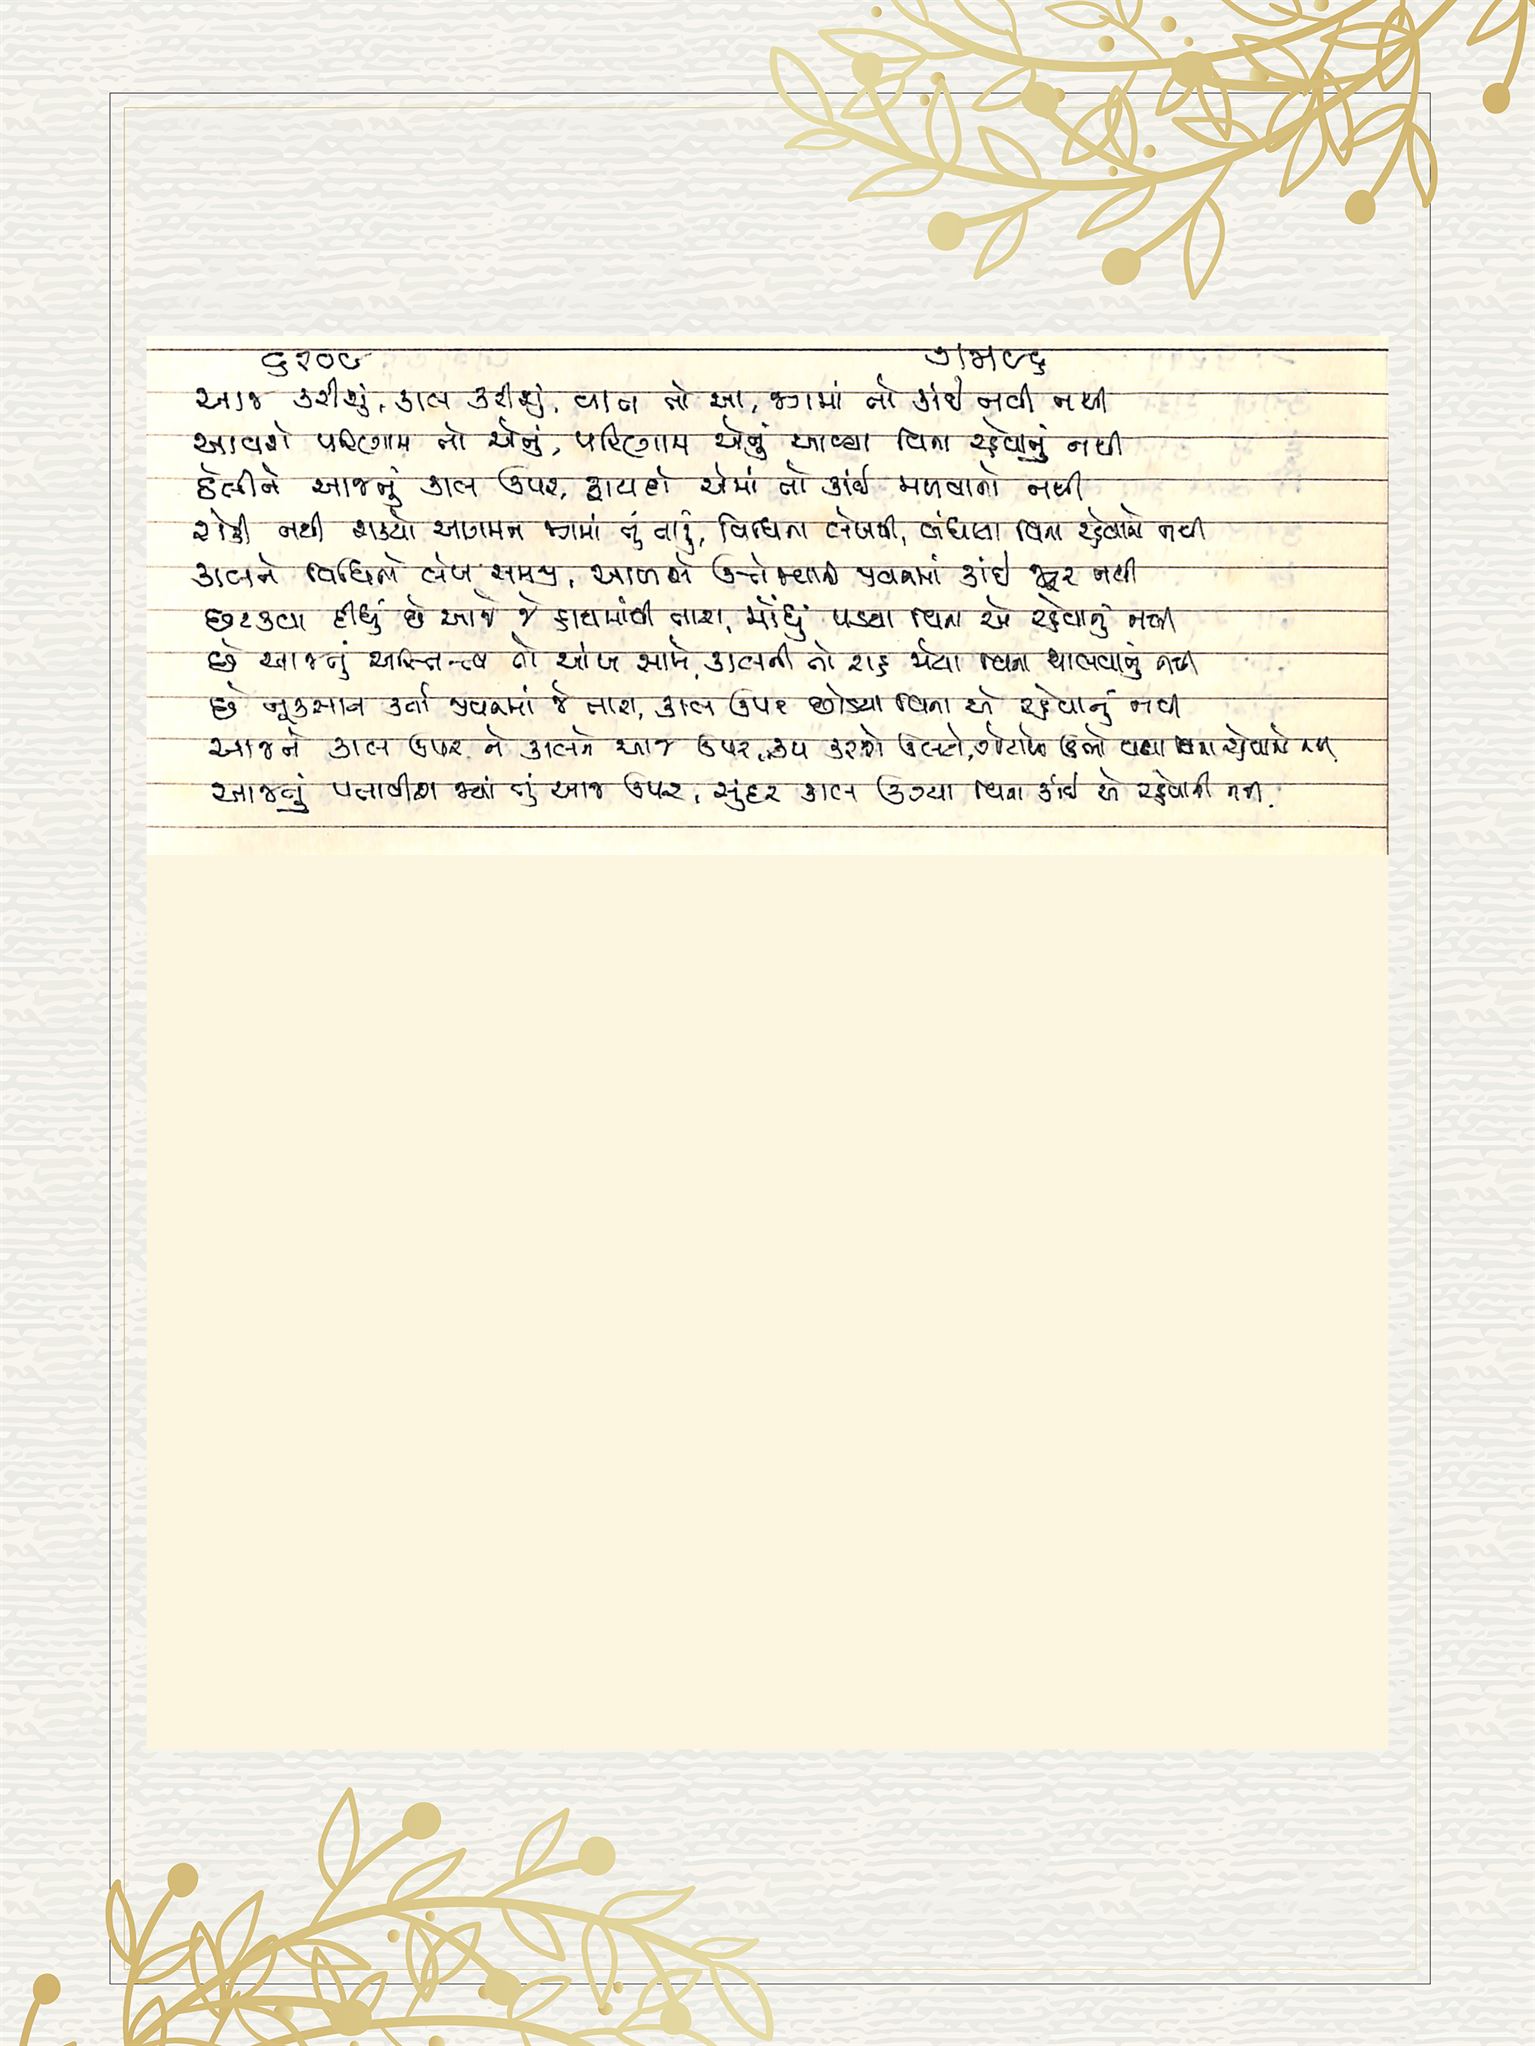 ૬૨૦૯
આજ કરીશું, કાલ કરીશું, વાત તો આ, જગમાં તો કાંઈ નવી નથી
આવશે પરિણામ તો એનું, પરિણામ એનું આવ્યા વિના રહેવાનું નથી
ઠેલીને આજનું કાલ ઉપર, ફાયદો એમાં તો કાંઈ મળવાનો નથી
રોકી નથી શક્યો આગમન જગમાં તું તારું, વિધિના લેખથી, બંધાયા વિના રહેવાનો નથી
કાલને વિધિનો લેખ સમજી, જીવનમાં કાંઈ જરૂર નથી
છટકવા દીધું છે આજે જે હાથમાંથી તારા, મોંઘું પડયા વિના એ રહેવાનું નથી
છે આજનું અસ્તિત્વ તો આંખ સામે, કાલની તો રાહ જોયા વિના ચાલવાનું નથી
છે નુકસાન કર્તા જીવનમાં જે તારા, કાલ ઉપર છોડયા વિના એ રહેવાનું નથી
આજને કાલ ઉપર ને કાલને આજ ઉપર, કરશો ઉલટો, ગોટાળો ઉભો થયા વિના રહેવાનો નથી
આજનું પતાવીશ જ્યાં તું આજ ઉપર, સુંદર કાલ ઉગ્યા વિના કાંઈ એ રહેવાની નથી.